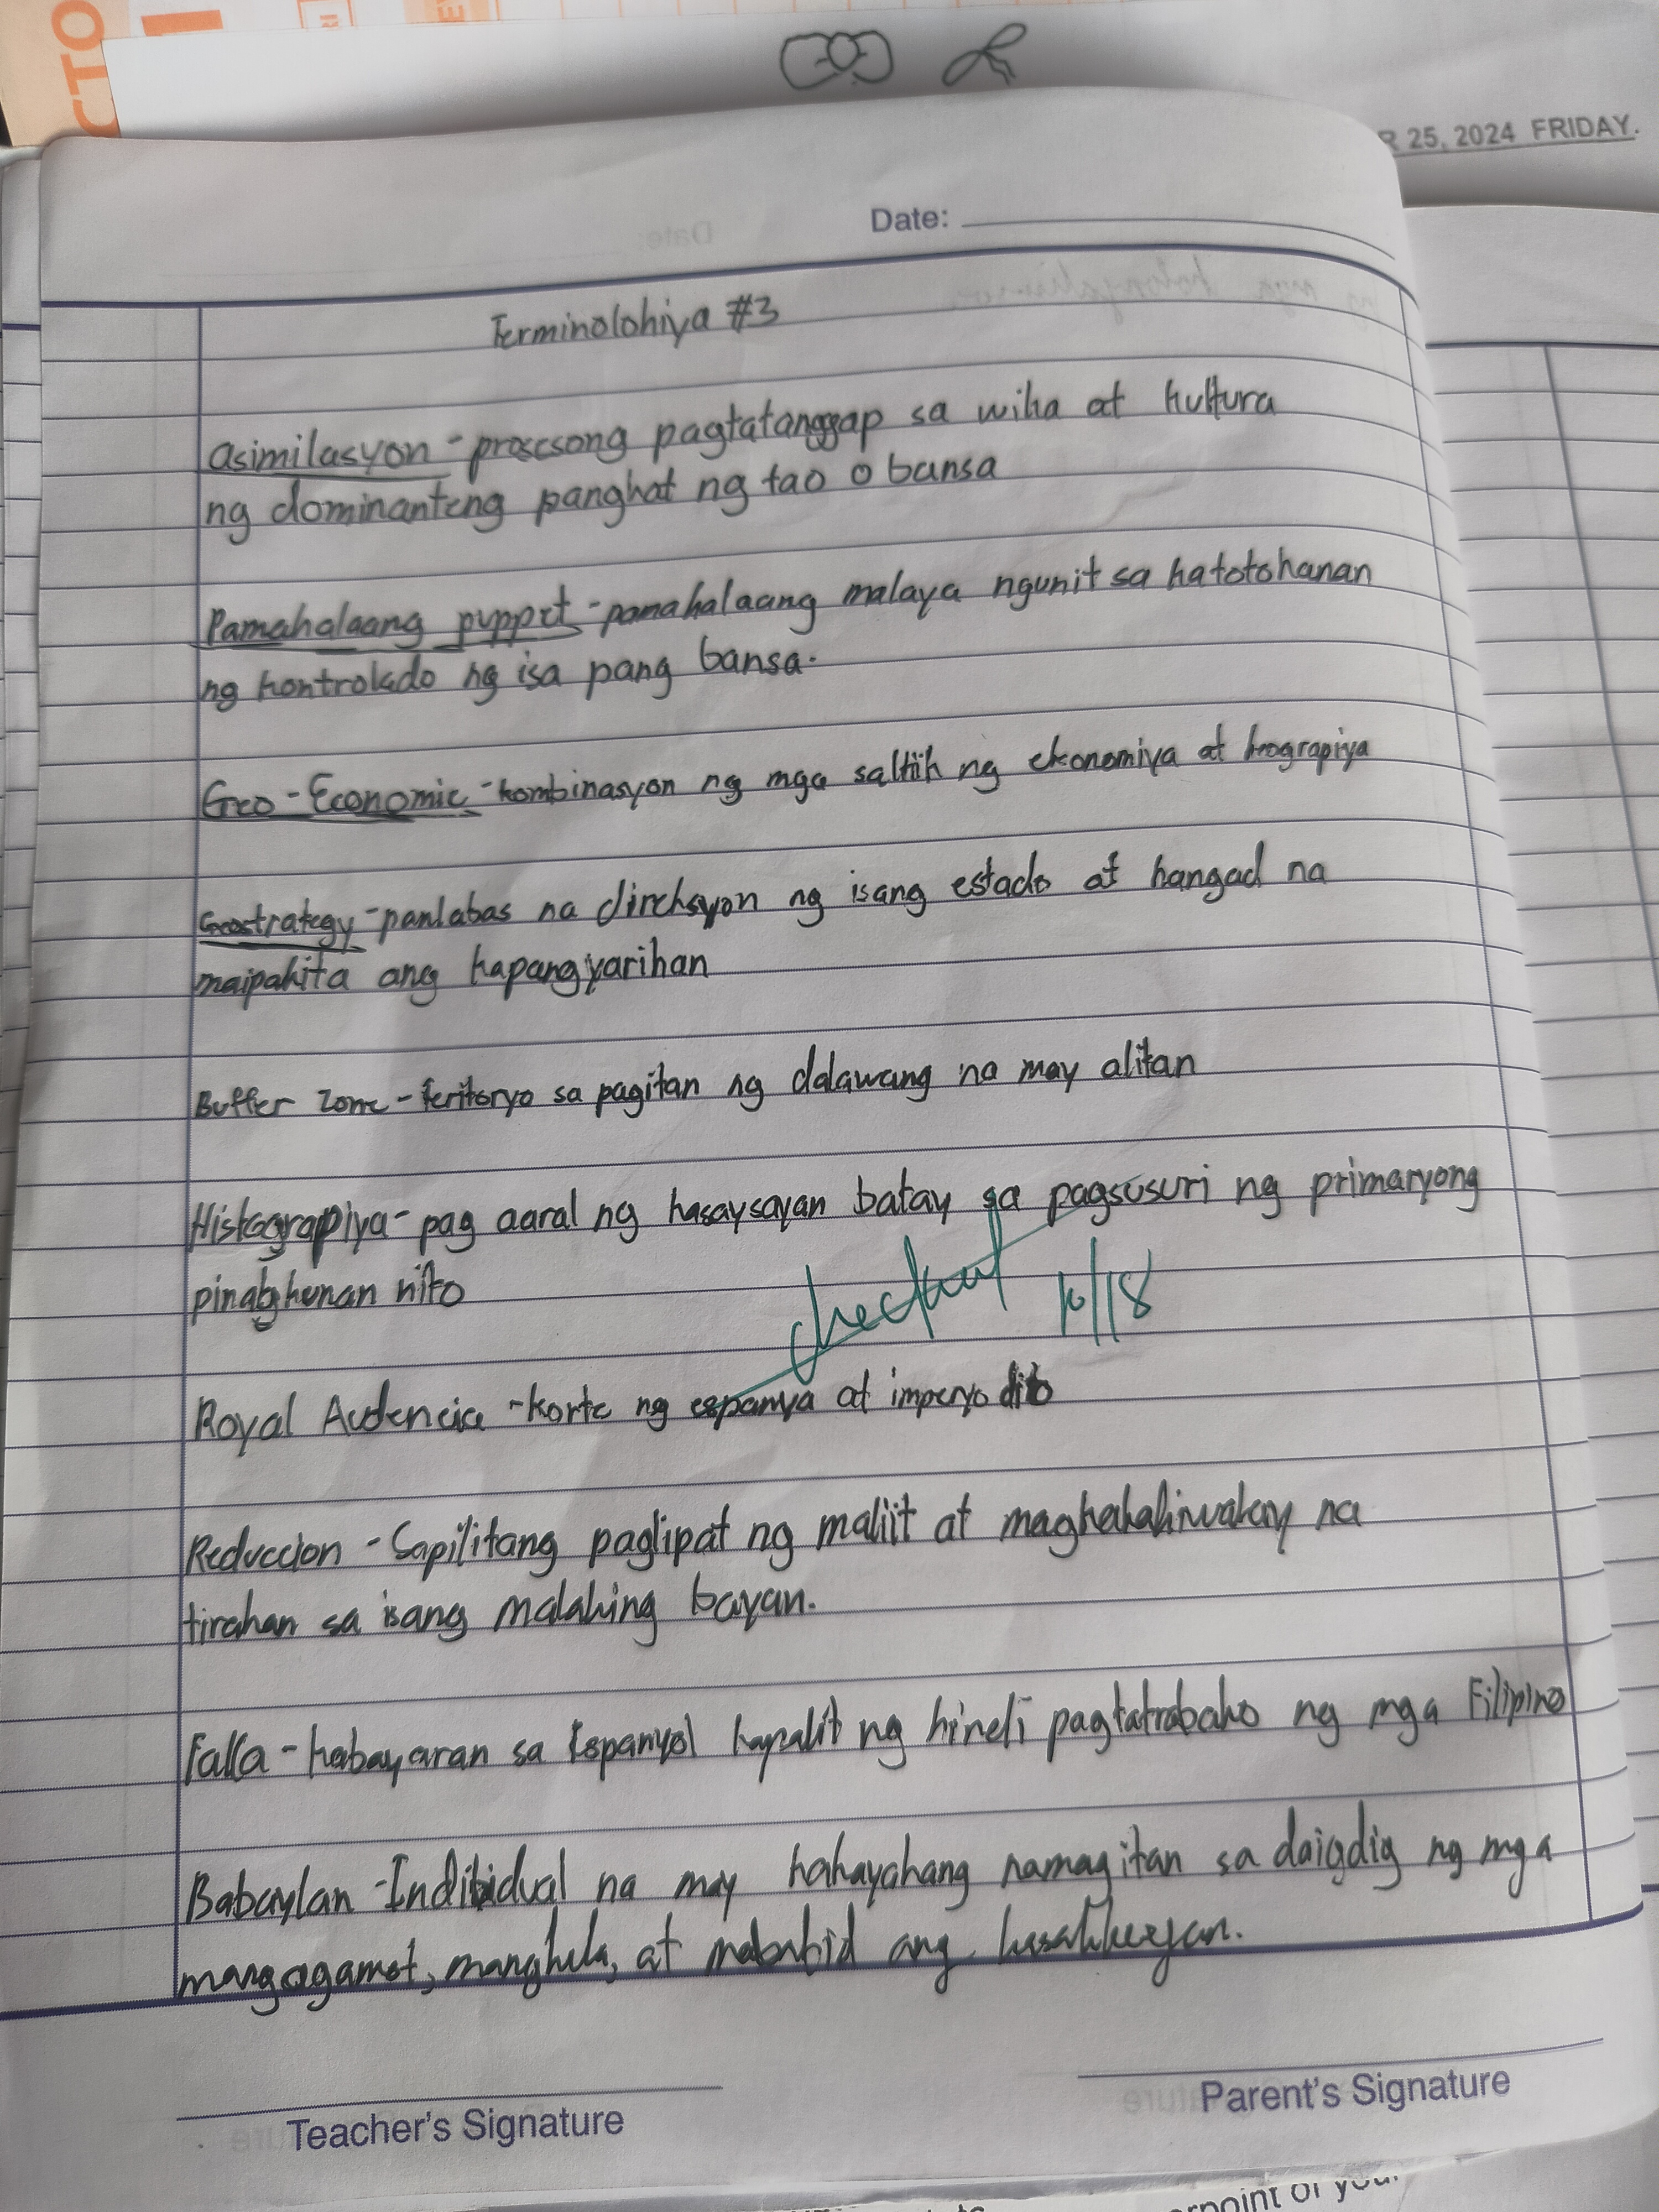 CTO
R 25, 2024 FRIDAY.
Date:
Terminolohiya #3
asimilasyon - prosesong pagtatanggap sa wika at kultura
ng dominanteng pangkat ng tao o bansa
Pamahalaang puppet - pamahalaang malaya ngunit sa katotohanan
ng kontrolado ng isa pang bansa.
Geo - Economic - kombinasyon ng mga saltik ng ekonomiya at heograpiya
Geostrategy - panlabas na direksyon ng isang estado at hangad na
maipakita ang kapangyarihan
Buffer Zone - teritoryo sa pagitan ng dalawang na may alitan
Histograpiya - pag aaral ng kasaysayan batay sa pagsusuri ng primaryong
nito
checked 10/18
Royal Audencia - korte ng espanya at imperyo dito
Reduccion - Sapilitang paglipat ng maliit at magkakahiwalay na
tirahan sa isang malaking bayan.
Falla - kabayaran sa Espanyol kapalit ng hindi pagtatrabaho ng mga Filipino
Babaylan - Indibidual na may kakayahang namagitan sa daigdig ng mga
mangagamot, manghula, at mababatid ang
Teacher's Signature
Parent's Signature
rpoint of your